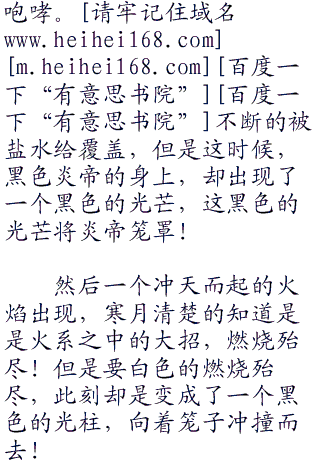 咆哮。[请牢记住域名
www.heihei168.com]
[m.heihei168.com][百度一
下“有意思书院”][百度一
下“有意思书院”]不断的被
盐水给覆盖，但是这时候，
黑色炎帝的身上，却出现了
一个黑色的光芒，这黑色的
光芒将炎帝笼罩！
然后一个冲天而起的火
焰出现，寒月清楚的知道是
是火系之中的大招，燃烧殆
尽！但是要白色的燃烧殆
尽，此刻却是变成了一个黑
色的光柱，向着笼子冲撞而
去！